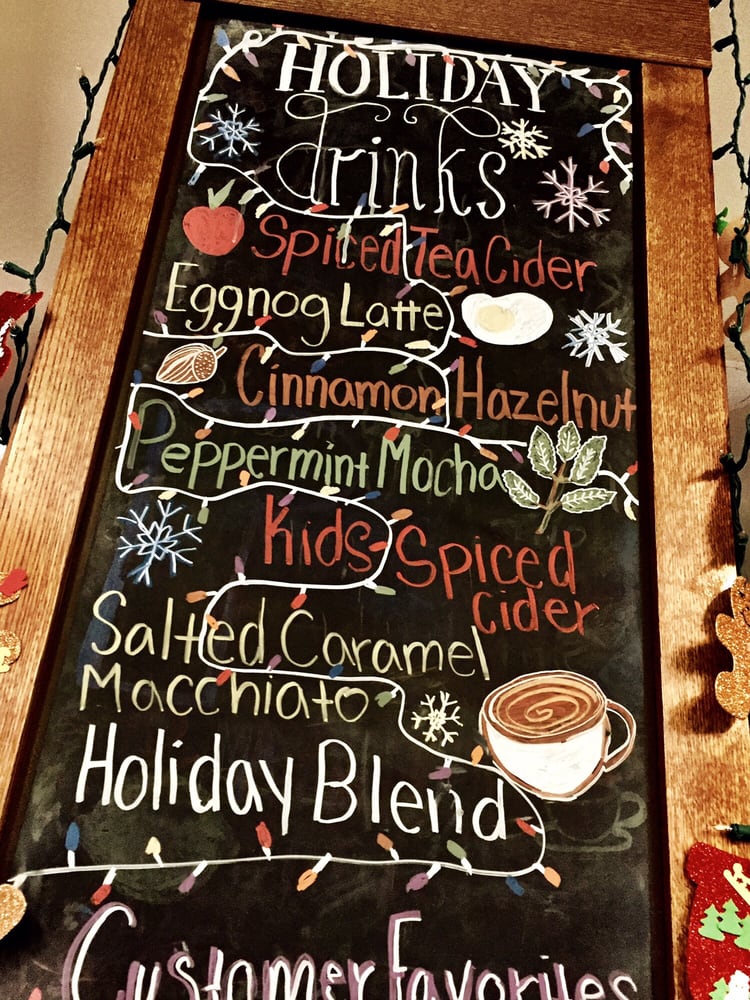 HOLIDAY
drinks
Spiced Tea Cider
Eggnog Latte
Cinnamon Hazelnut
Peppermint Mocha
Kids Spiced
Cider
Salted Caramel
Macchiato
Holiday Blend
Customer Favorites